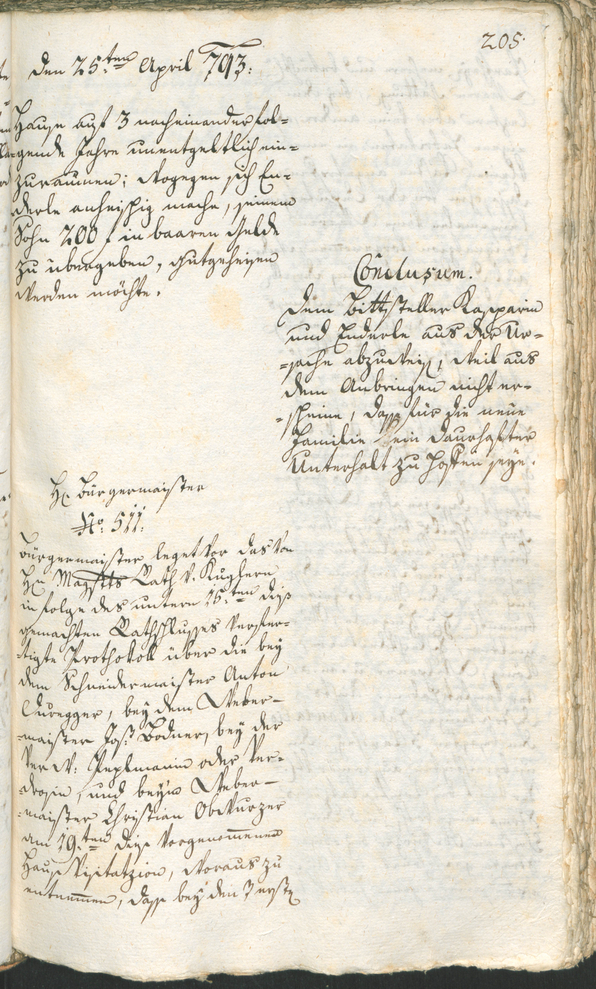 205
den 25.ten April 793.
Hause auf 3 nacheinander fol-
gende Jahre unentgeltlich ein-
zuraumen; wogegen sich En-
derle anheischig mache, seinem
Sohn 200 f in baaren Gelde
zu übergeben, gutgeheisen
werden möchte.
Conclusum.
Dem Bittsteller Kasparin
und Enderle aus der Ur-
-sache abzuweis, weil aus
dem Anbringen nicht er-
-scheine, dass für die neue
Familie kein dauerhafter
Unterhalt zu hoffen seye.
Hr. Bürgermaister
No. 511.
Bürgermaister leget vor das von
Hrn Magstts Rath v. Kuglern
in folge des untern 15.ten diss
gemachten Rathschlusses verfer-
-tigte Prothokoll über die bey
dem Schneidermaister Anton
Auregger, bey dem Weber-
-maister Jos. Bodner, bey der
Ver-
und beym Weber-
-maister Christian Obwurzer
am 19.ten diss vorgenommenen
Haus Visitazion, woraus zu
entnemmen, dass bey den